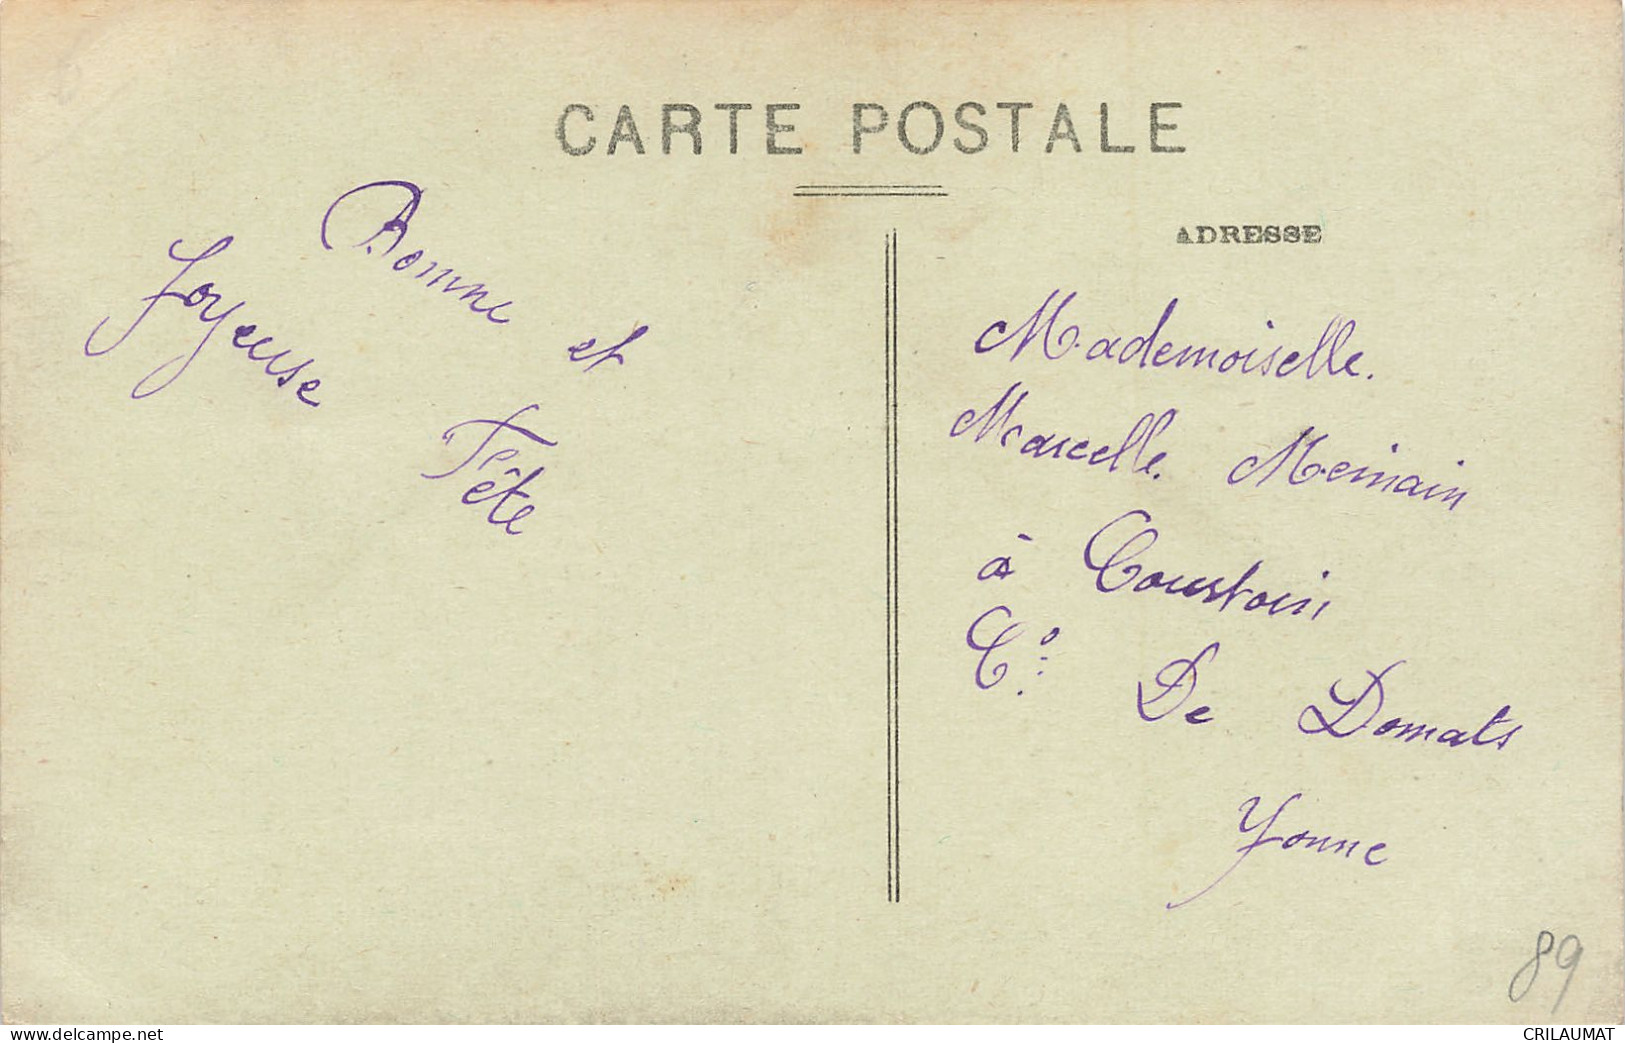 CARTE POSTALE
Bonne et
Joyeuse
Fête
ADRESSE
Mademoiselle.
Marcelle Memain
à Courtoin
Cº: De Domats
Yonne
89
www.delcampe.net
CRILAUMAT